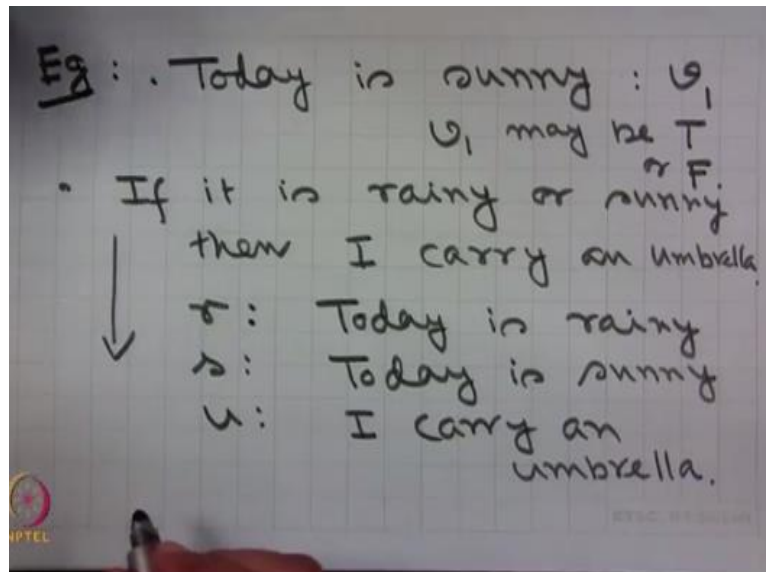 Eg: . Today is sunny : v₁
v₁ may be T
or F.
• If it is rainy or sunny
then I carry an umbrella.
r: Today is rainy
s: Today is sunny
u: I carry an
umbrella.
NPTEL